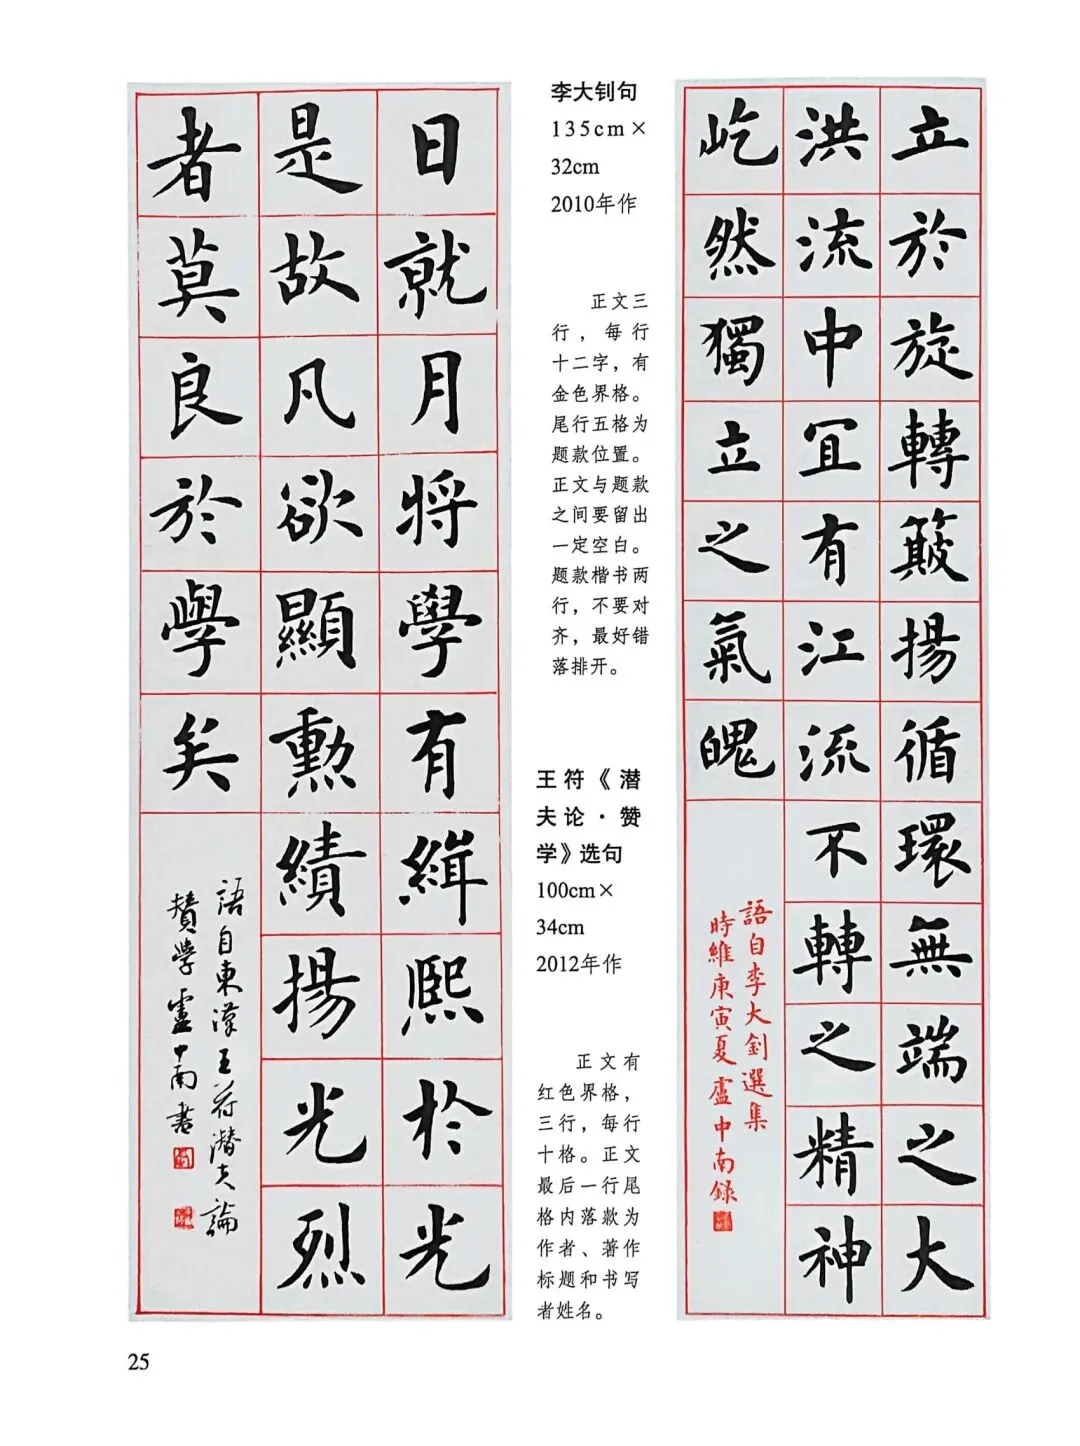 立於旋轉簸揚循環無端之大
洪流中冝有江流不轉之精神
屹然獨立之氣魄
語自李大釗選集
時維庚寅夏盧中南錄
李大钊句
135cm×
32cm
2010年作
正文三
行，每行
十二字，有
金色界格。
尾行五格为
题款位置。
正文与题款
之间要留出
一定空白。
题款楷书两
行，不要对
齐，最好错
落排开。
王符《潜
夫论·赞
学》选句
100cm×
34cm
2012年作
正文有
红色界格，
三行，每行
十格。正文
最后一行尾
格内落款为
作者、著作
标题和书写
者姓名。
日就月將學有緝熙於光
是故凡欲顯勳績揚光烈
者莫良於學矣
語自東漢王符潛夫論
贊學盧中南書
25